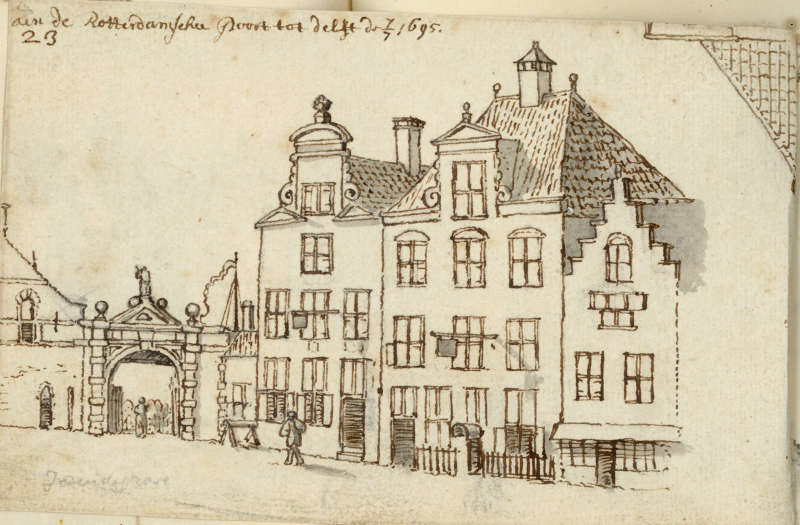 aen de Rotterdamsche Poort tot delft de 7/7 1695.
23